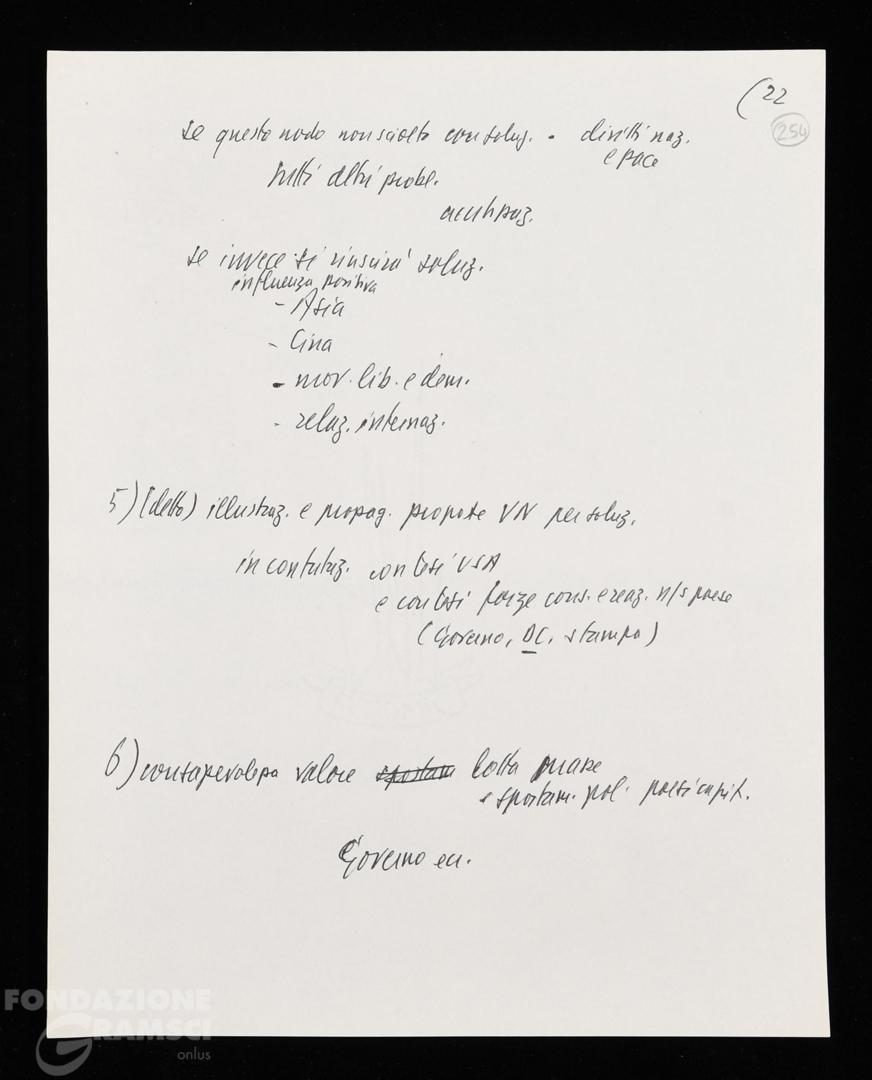 (22
254
se questo nodo non sciolto con soluz. - diritti naz.
e pace
tutti altri probl.
acutizzaz.
se invece si riuscirà soluz.
influenza positiva
- Asia
- Cina
- mov. lib. e dem.
- relaz. internaz.
5) (detto) illustraz. e propag. proposte VN per soluz.
in confutaz. con tesi USA
e con tesi forze cons. e reaz. n/s paese
(Governo, DC, stampa)
6) consapevolezza valore spostam lotta masse
e spostam. pol. paesi capit.
Governo ecc.
FONDAZIONE
GRAMSCI
onlus